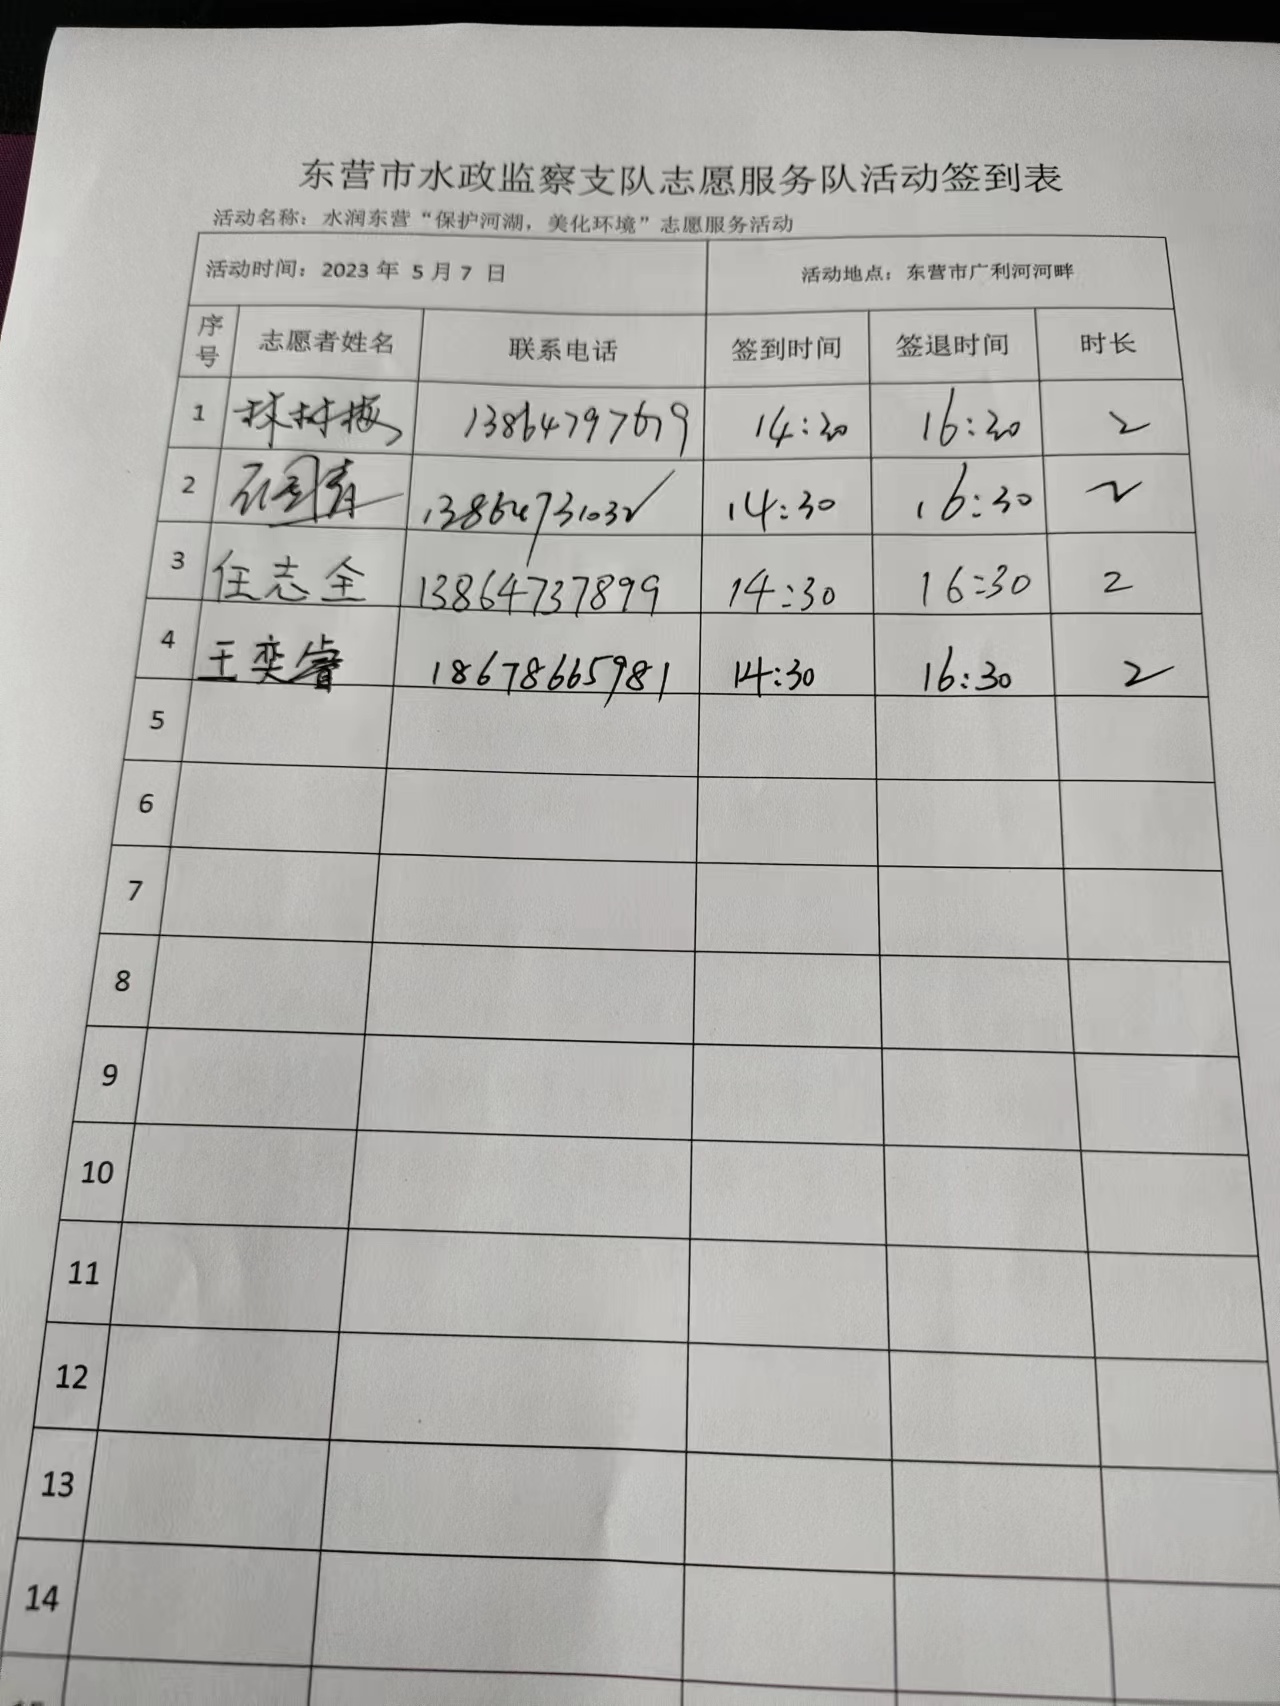 东营市水政监察支队志愿服务队活动签到表
活动名称：水润东营“保护河湖，美化环境”志愿服务活动
活动时间：2023 年 5 月 7 日 活动地点：东营市广利河河畔
序号 志愿者姓名 联系电话 签到时间 签退时间 时长
1 林树梅 13864797679 14:30 16:30 2
2 13864731032 14:30 16:30 2
3 任志全 13864737899 14:30 16:30 2
4 王奕睿 18678665981 14:30 16:30 2
5
6
7
8
9
10
11
12
13
14